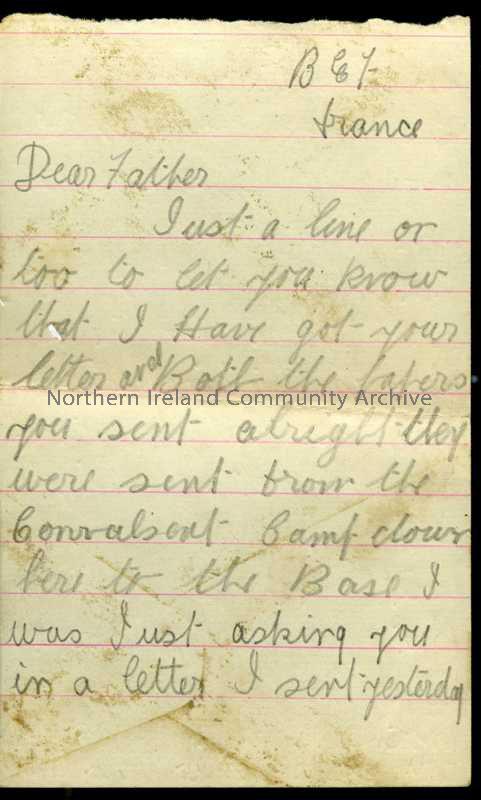 B E F
France
Dear Father
Just a line or
too to let you know
that I Have got your
letter and Both the papers
Northern Ireland Community Archive
you sent alright they
were sent from the
Convalsent Camp down
here to the Base I
was Just asking you
in a letter I sent yesterday